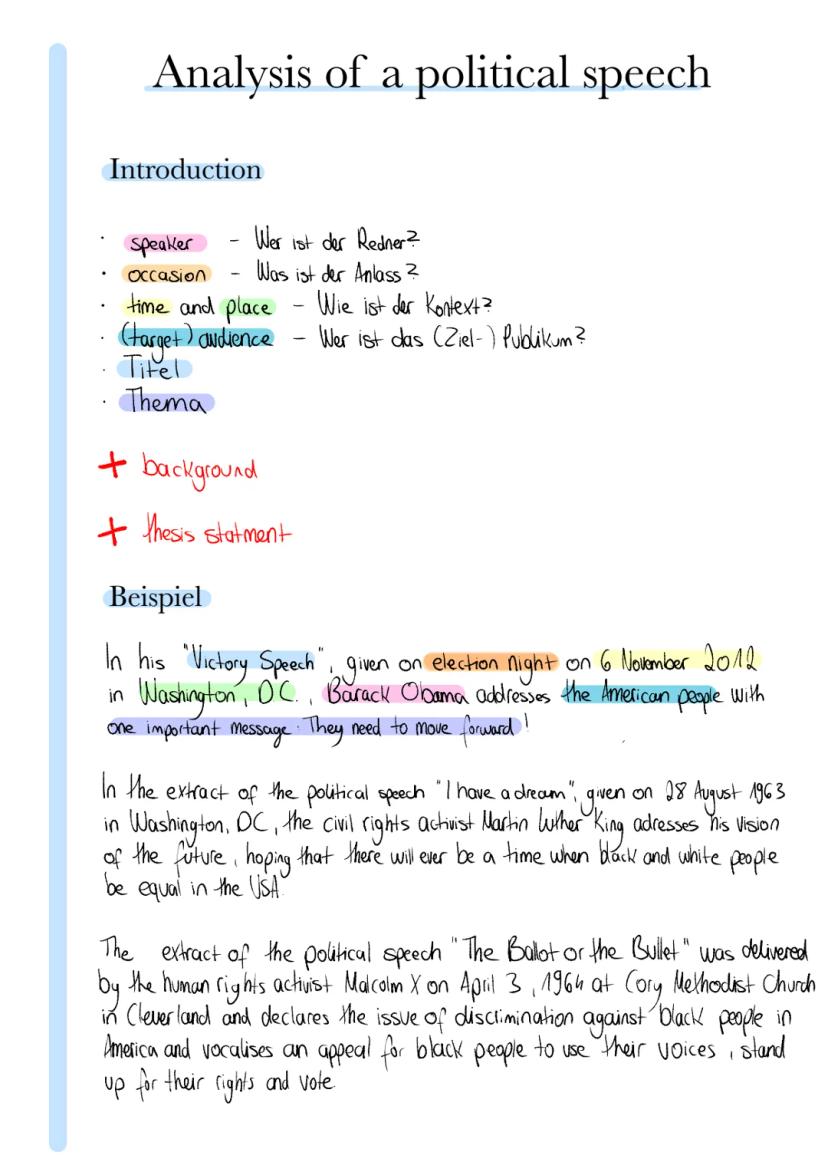 Analysis of a political speech
Introduction
· speaker – Wer ist der Redner?
· occasion – Was ist der Anlass?
· time and place – Wie ist der Kontext?
· (target) audience – Wer ist das (Ziel-) Publikum?
· Titel
· Thema
+ background
+ thesis statment
Beispiel
In his "Victory Speech", given on election night on 6 November 2012
in Washington, DC., Barack Obama addresses the American people with
one important message: They need to move forward!
In the extract of the political speech "I have a dream", given on 28 August 1963
in Washington, DC, the civil rights activist Martin Luther King adresses his vision
of the future, hoping that there will ever be a time when black and white people
be equal in the USA.
The extract of the political speech "The Ballot or the Bullet" was delivered
by the human rights activist Malcolm X on April 3, 1964 at Cory Methodist Church
in Cleverland and declares the issue of discrimination against black people in
America and vocalises an appeal for black people to use their voices, stand
up for their rights and vote.